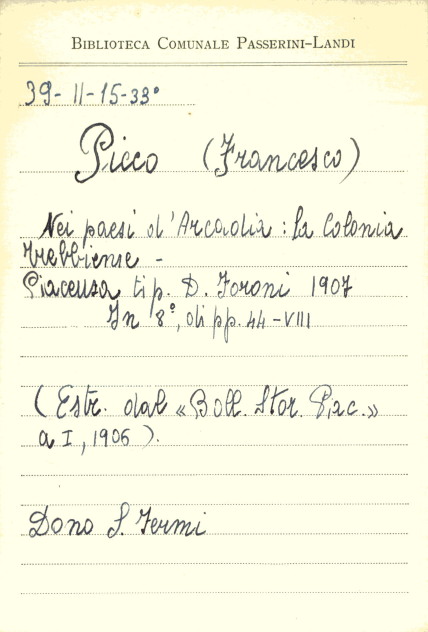 BIBLIOTECA COMUNALE PASSERINI-LANDI
39-II-15-33°
Picco (Francesco)
Nei paesi d'Arcadia: la Colonia
trebbiense -
Piacenza tip. D. Foroni 1907
In 8°, di pp. 44-VIII
(Estr. dal «Boll. Stor. Piac.»
a I, 1906).
Dono S. Fermi